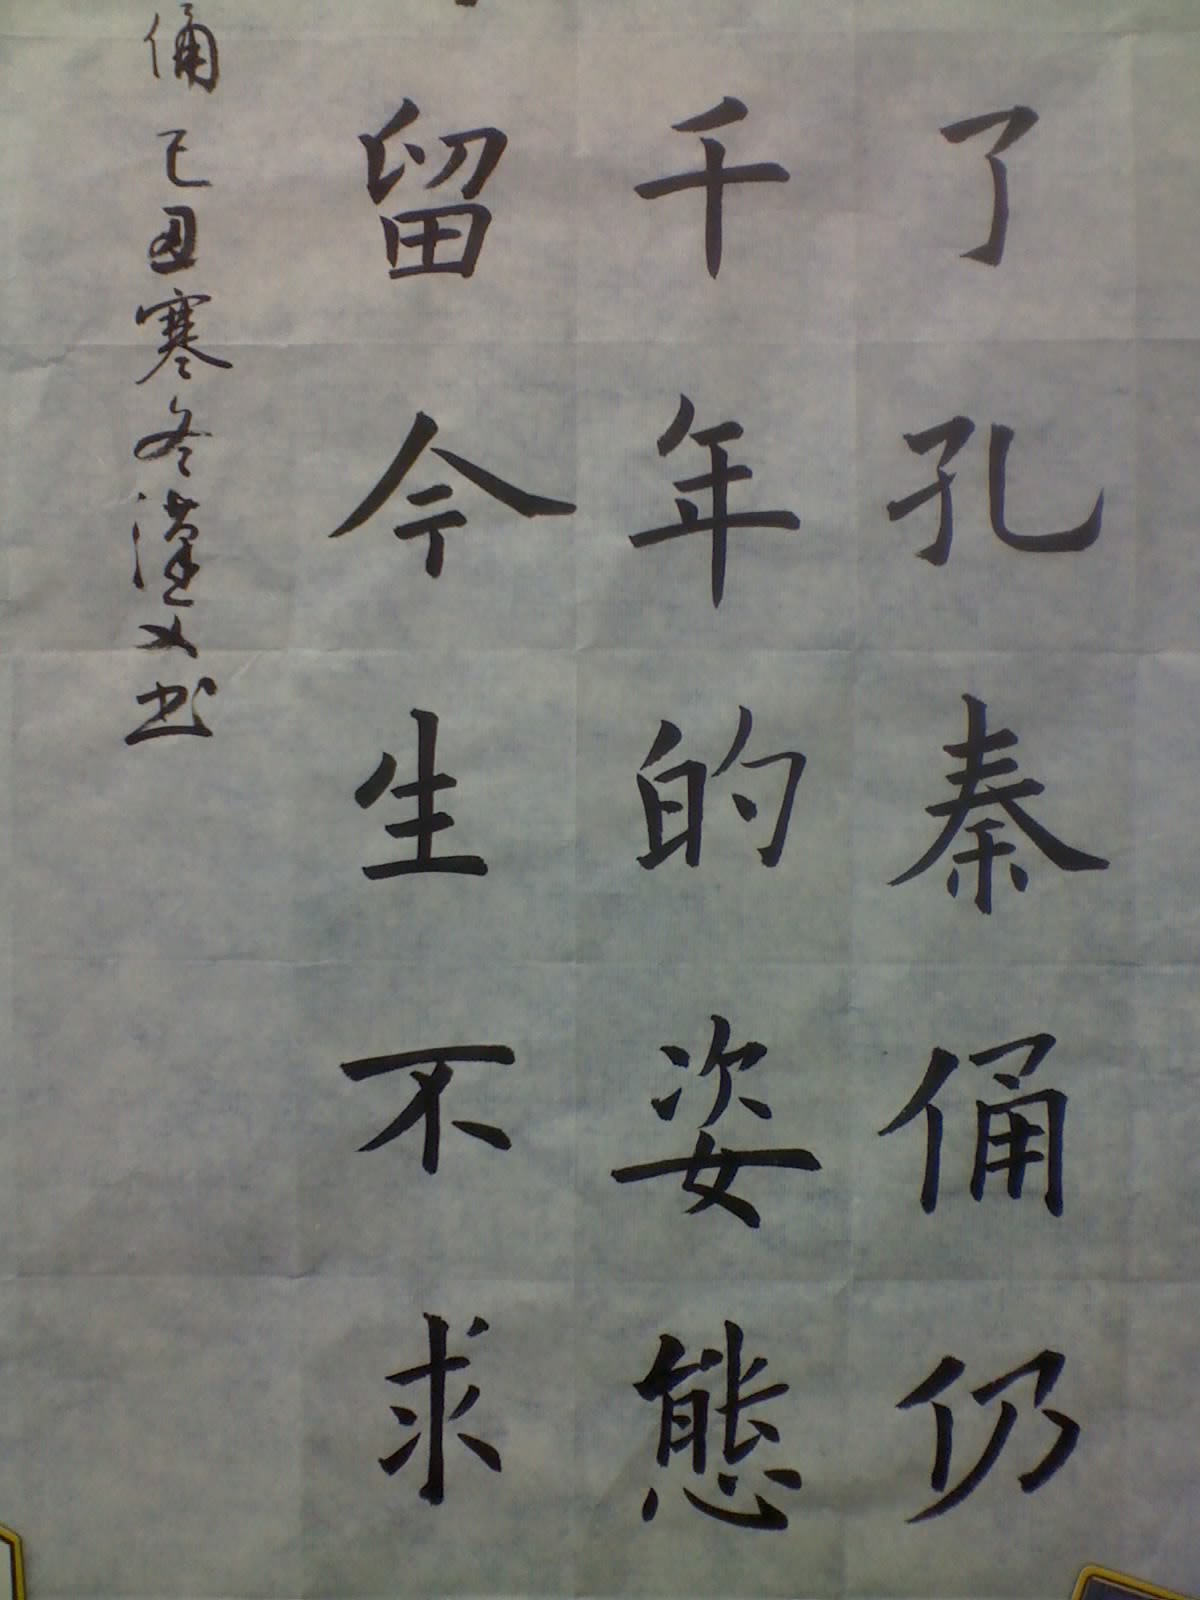 了孔秦俑仍
千年的姿態
留今生不求
俑己丑寒冬漢文书